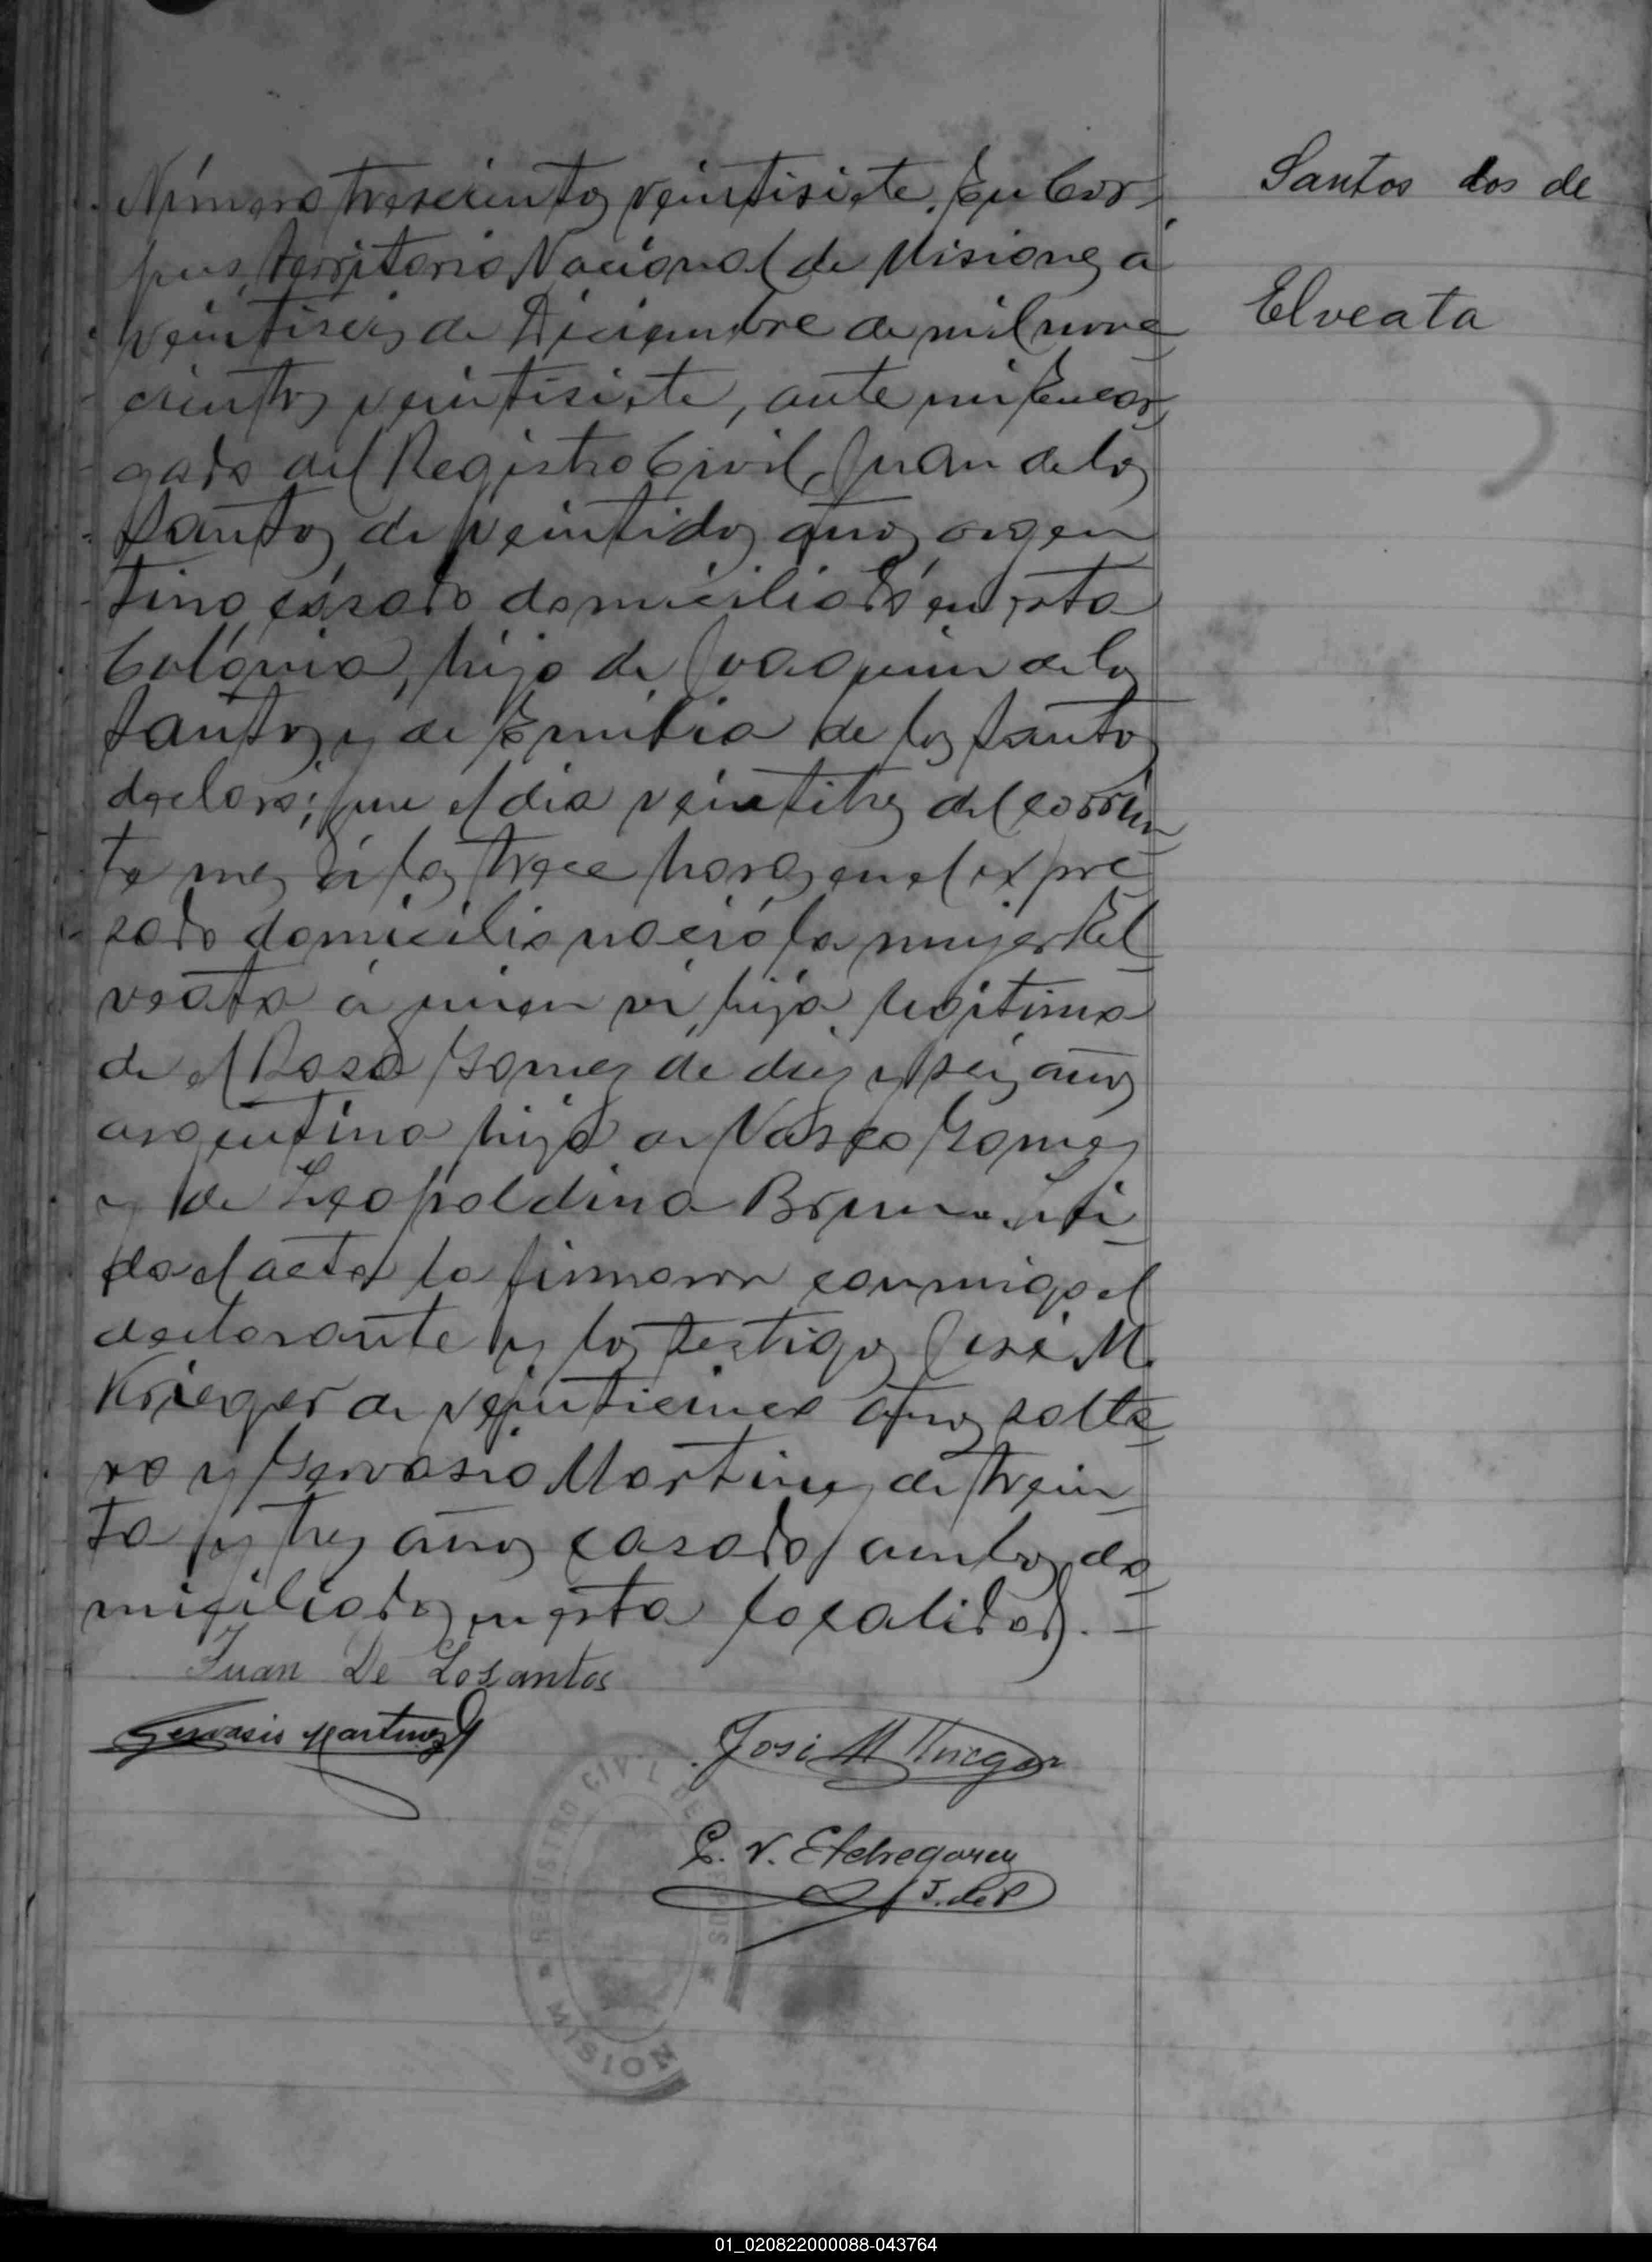 Número trescientos veintisiete. En Cor-
pus, territorio Nacional de Misiones á
veintiseis de Diciembre de mil nove-
cientos veintisiete, ante mi Encar-
gado del Registro Civil, Juan de los
Santos de veintidos años argen
tino casado domiciliado en esta
Colonia, hijo de Joaquin de los
Santos y de Emilia de los Santos
declaró; que el dia veintitres del corrien-
te mes á las trece horas en el expre-
sado domicilio nació la mujer El-
veata á quien vi, hija legitima
de el Rosa Gomes de diez y seis años
argentina hija de Vasco Gomes
y de Leopoldina
da el acta la firmaron conmigo el
declarante y los testigos José M.
Krieger de veinticinco años solte-
ro y Gervasio Martinez de trein-
ta y tres años casado, ambos do-
miciliados en esta localidad. -
Juan De Losantos
Gervasio Martinez
José M Krieger
E. V. Etchegaray
J. de P
Santos dos de
Elveata
REGISTRO CIVIL DE
MISION
01_020822000088-043764